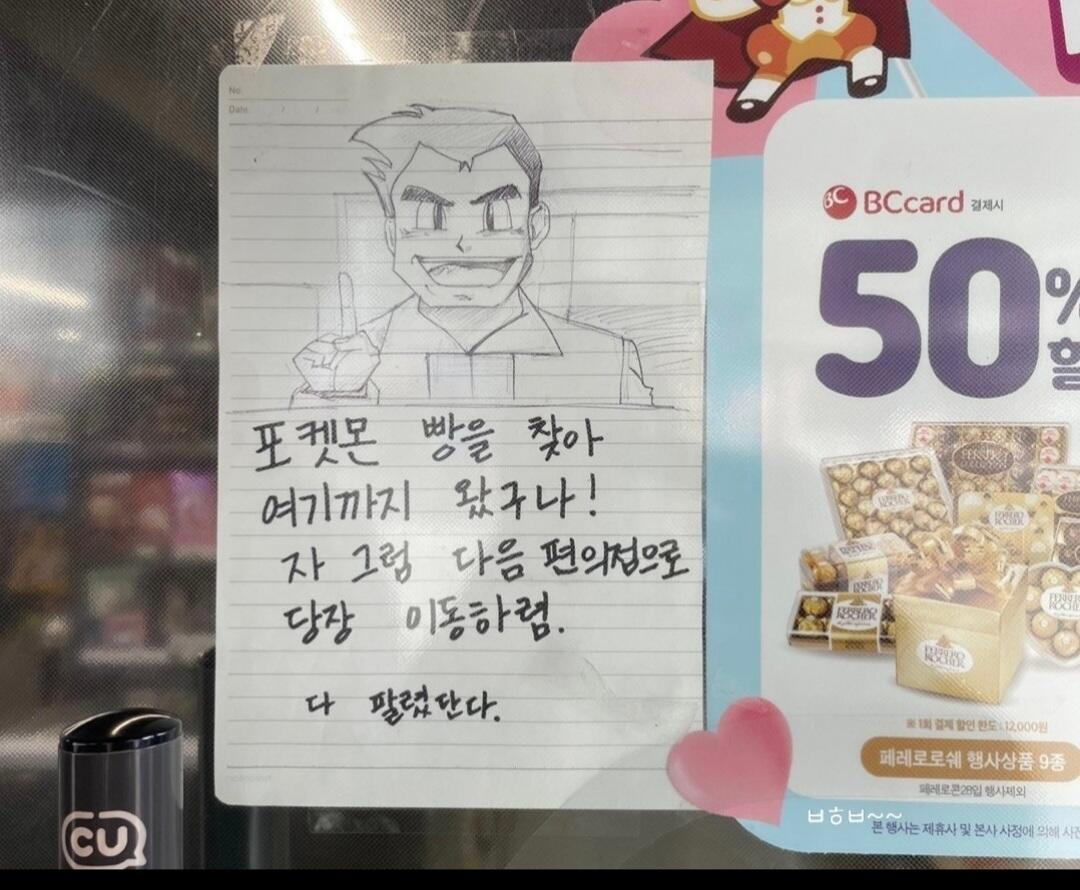 No.
Date. / /
포켓몬 빵을 찾아
여기까지 왔구나!
자 그럼 다음 편의점으로
당장 이동하렴.
다 팔렸단다.
CU
BC BCcard 결제시
50%
FERRERO ROCHER
FERRERO ROCHER
FERRERO ROCHER
FERRERO ROCHER
FERRERO ROCHER
FERRERO ROCHER
※ 1회 결제 할인 한도 : 12,000원
페레로로쉐 행사상품 9종
페레로콘28입 행사제외
ㅂㅎㅂ~~
본 행사는 제휴사 및 본사 사정에 의해